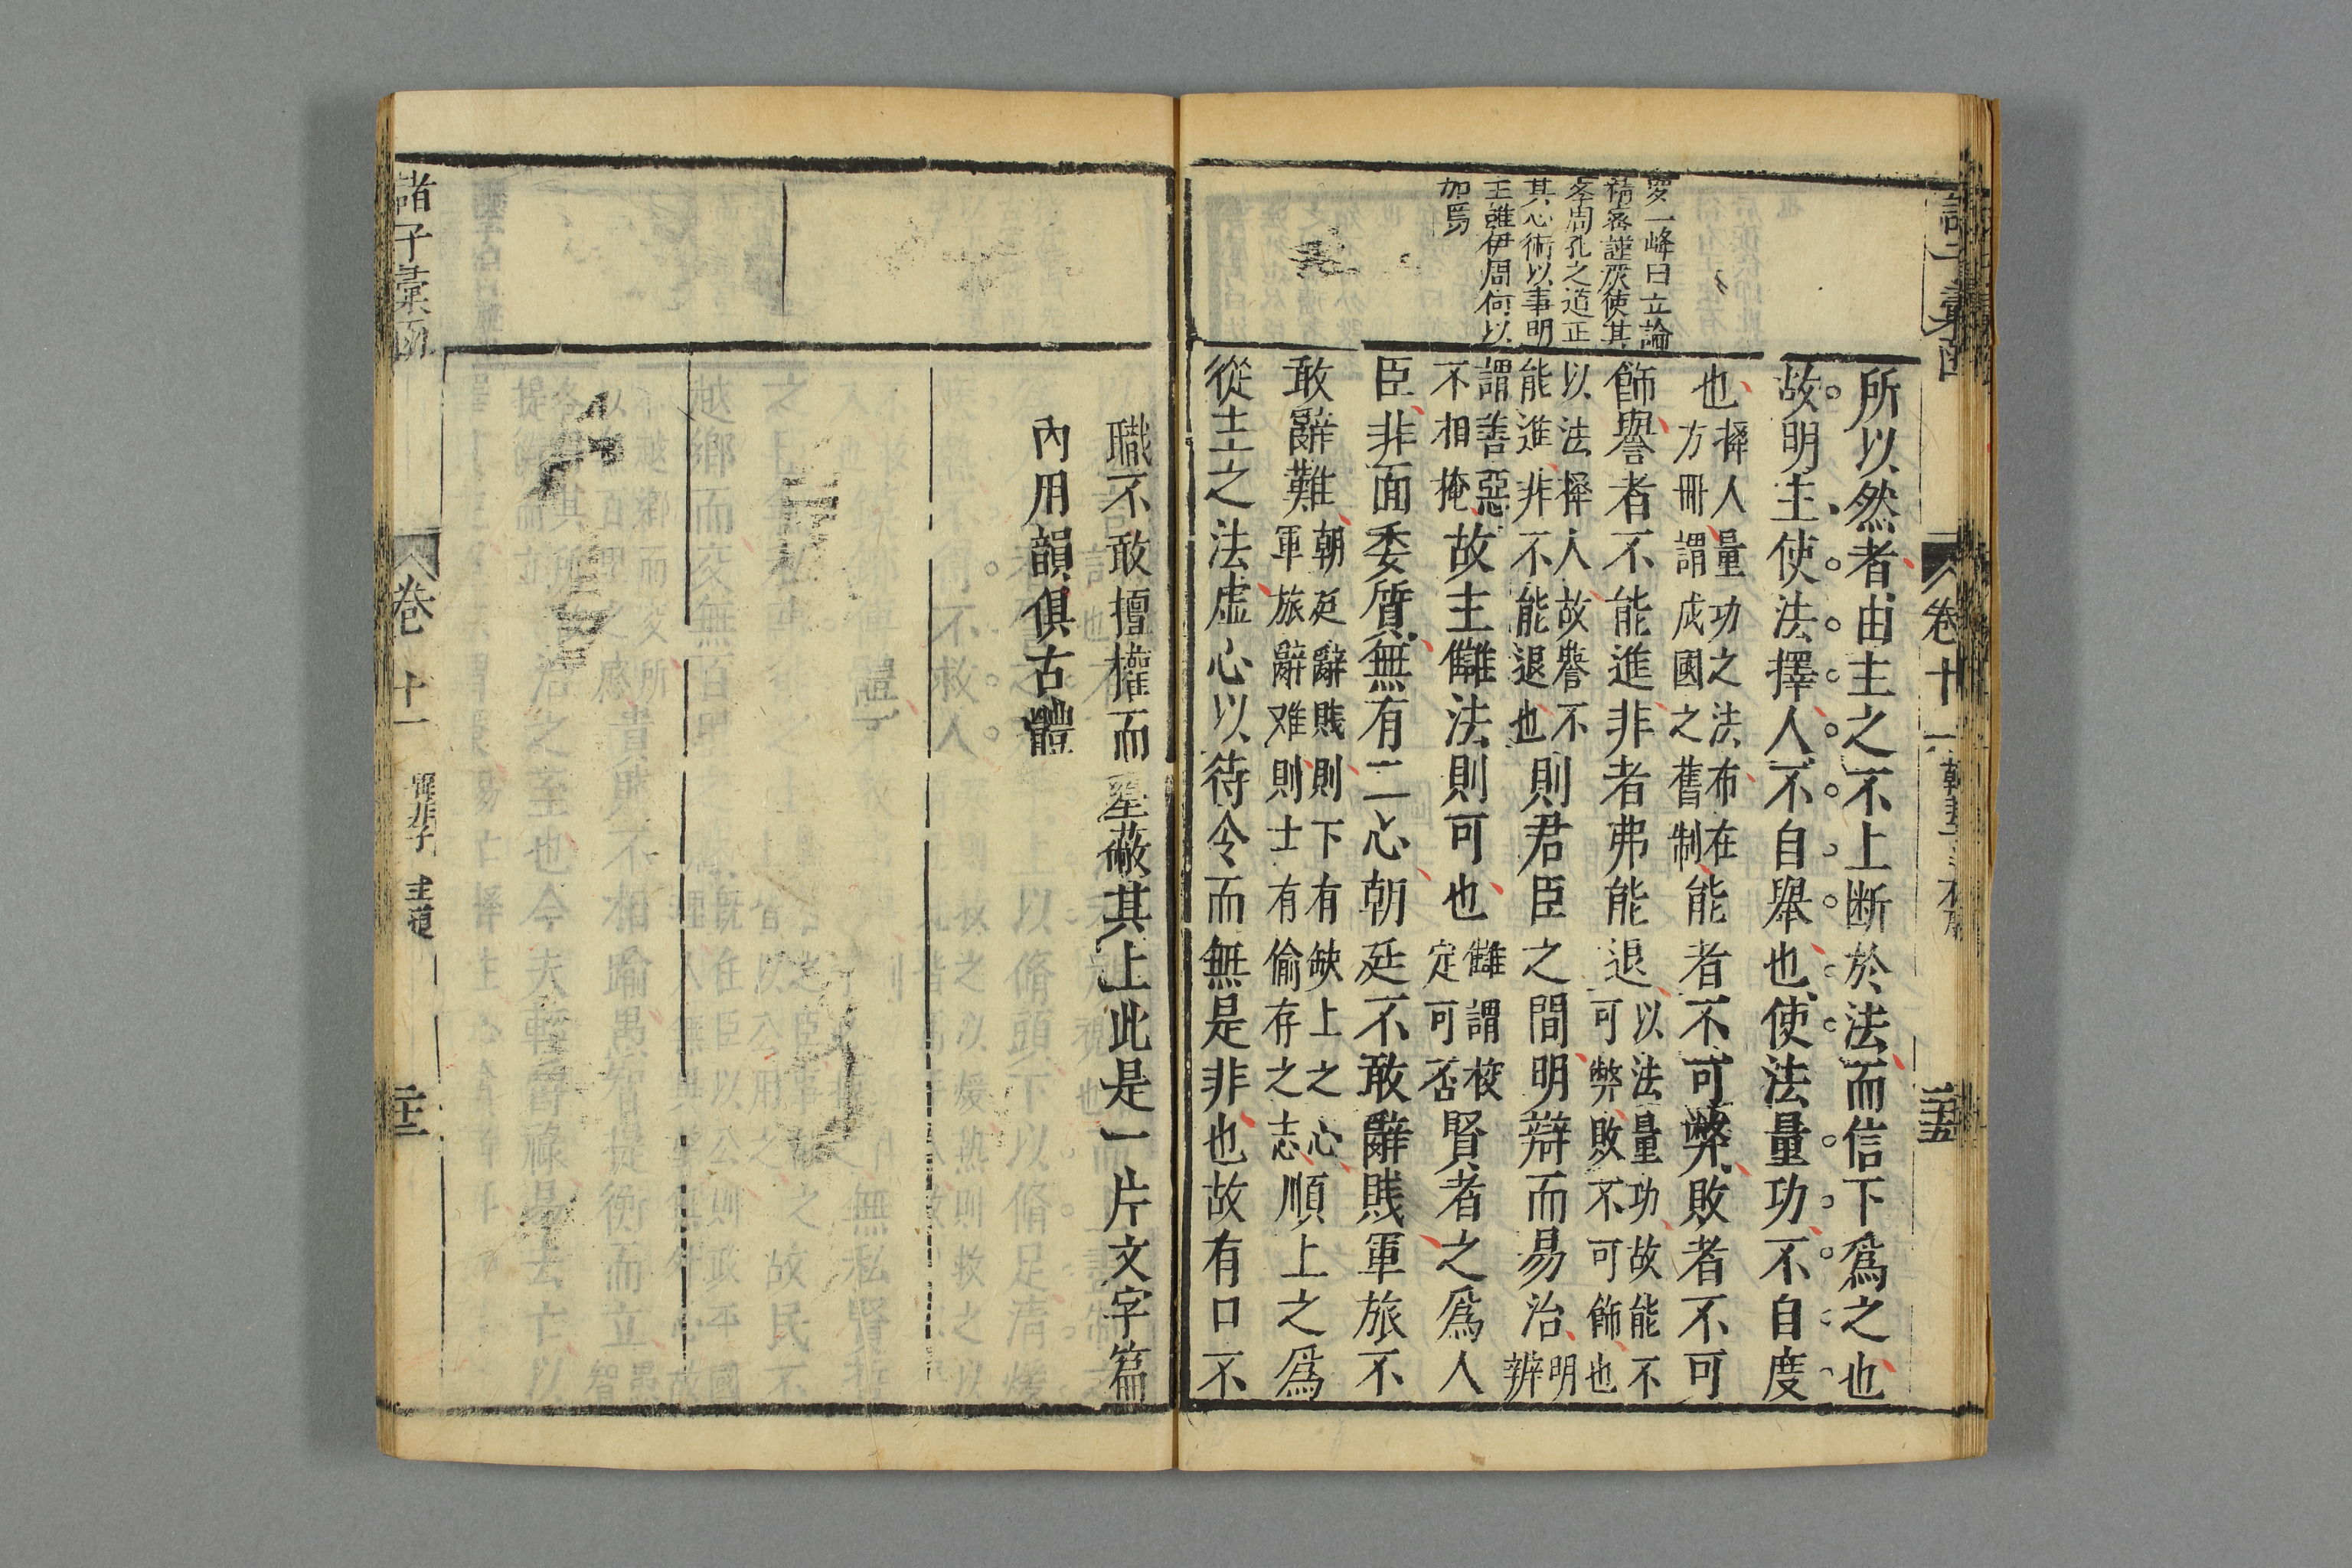 所以然者由主之不上断於法而信下爲之也
故明主使法擇人不自舉也使法量功不自度
也
擇人量功之法布在
方冊謂成國之舊制
能者不可弊敗者不可
飾譽者不能進非者弗能退
以法量功故能不
可弊敗不可飾也
以法擇人故譽不
能進非不能退也
則君臣之間明辯而易治
明
辨
謂善惡
不相掩
故主讎法則可也
讎謂校
定可否
賢者之爲人
臣非面委質無有二心朝廷不敢辭賤軍旅不
敢辭難
朝廷辭賤則下有缺上之心
軍旅辭难則士有偷存之志
順上之爲
從主之法虛心以待令而無是非也故有口不
一峰曰立論
精密謹嚴使其
奉周孔之道正
其心術以事明
主雖伊周何以
加焉
卷十一
職不敢擅權而壅蔽其上此是一片文字篇
內用韻俱古體
諸子彙函
卷十一
韓非子 主道